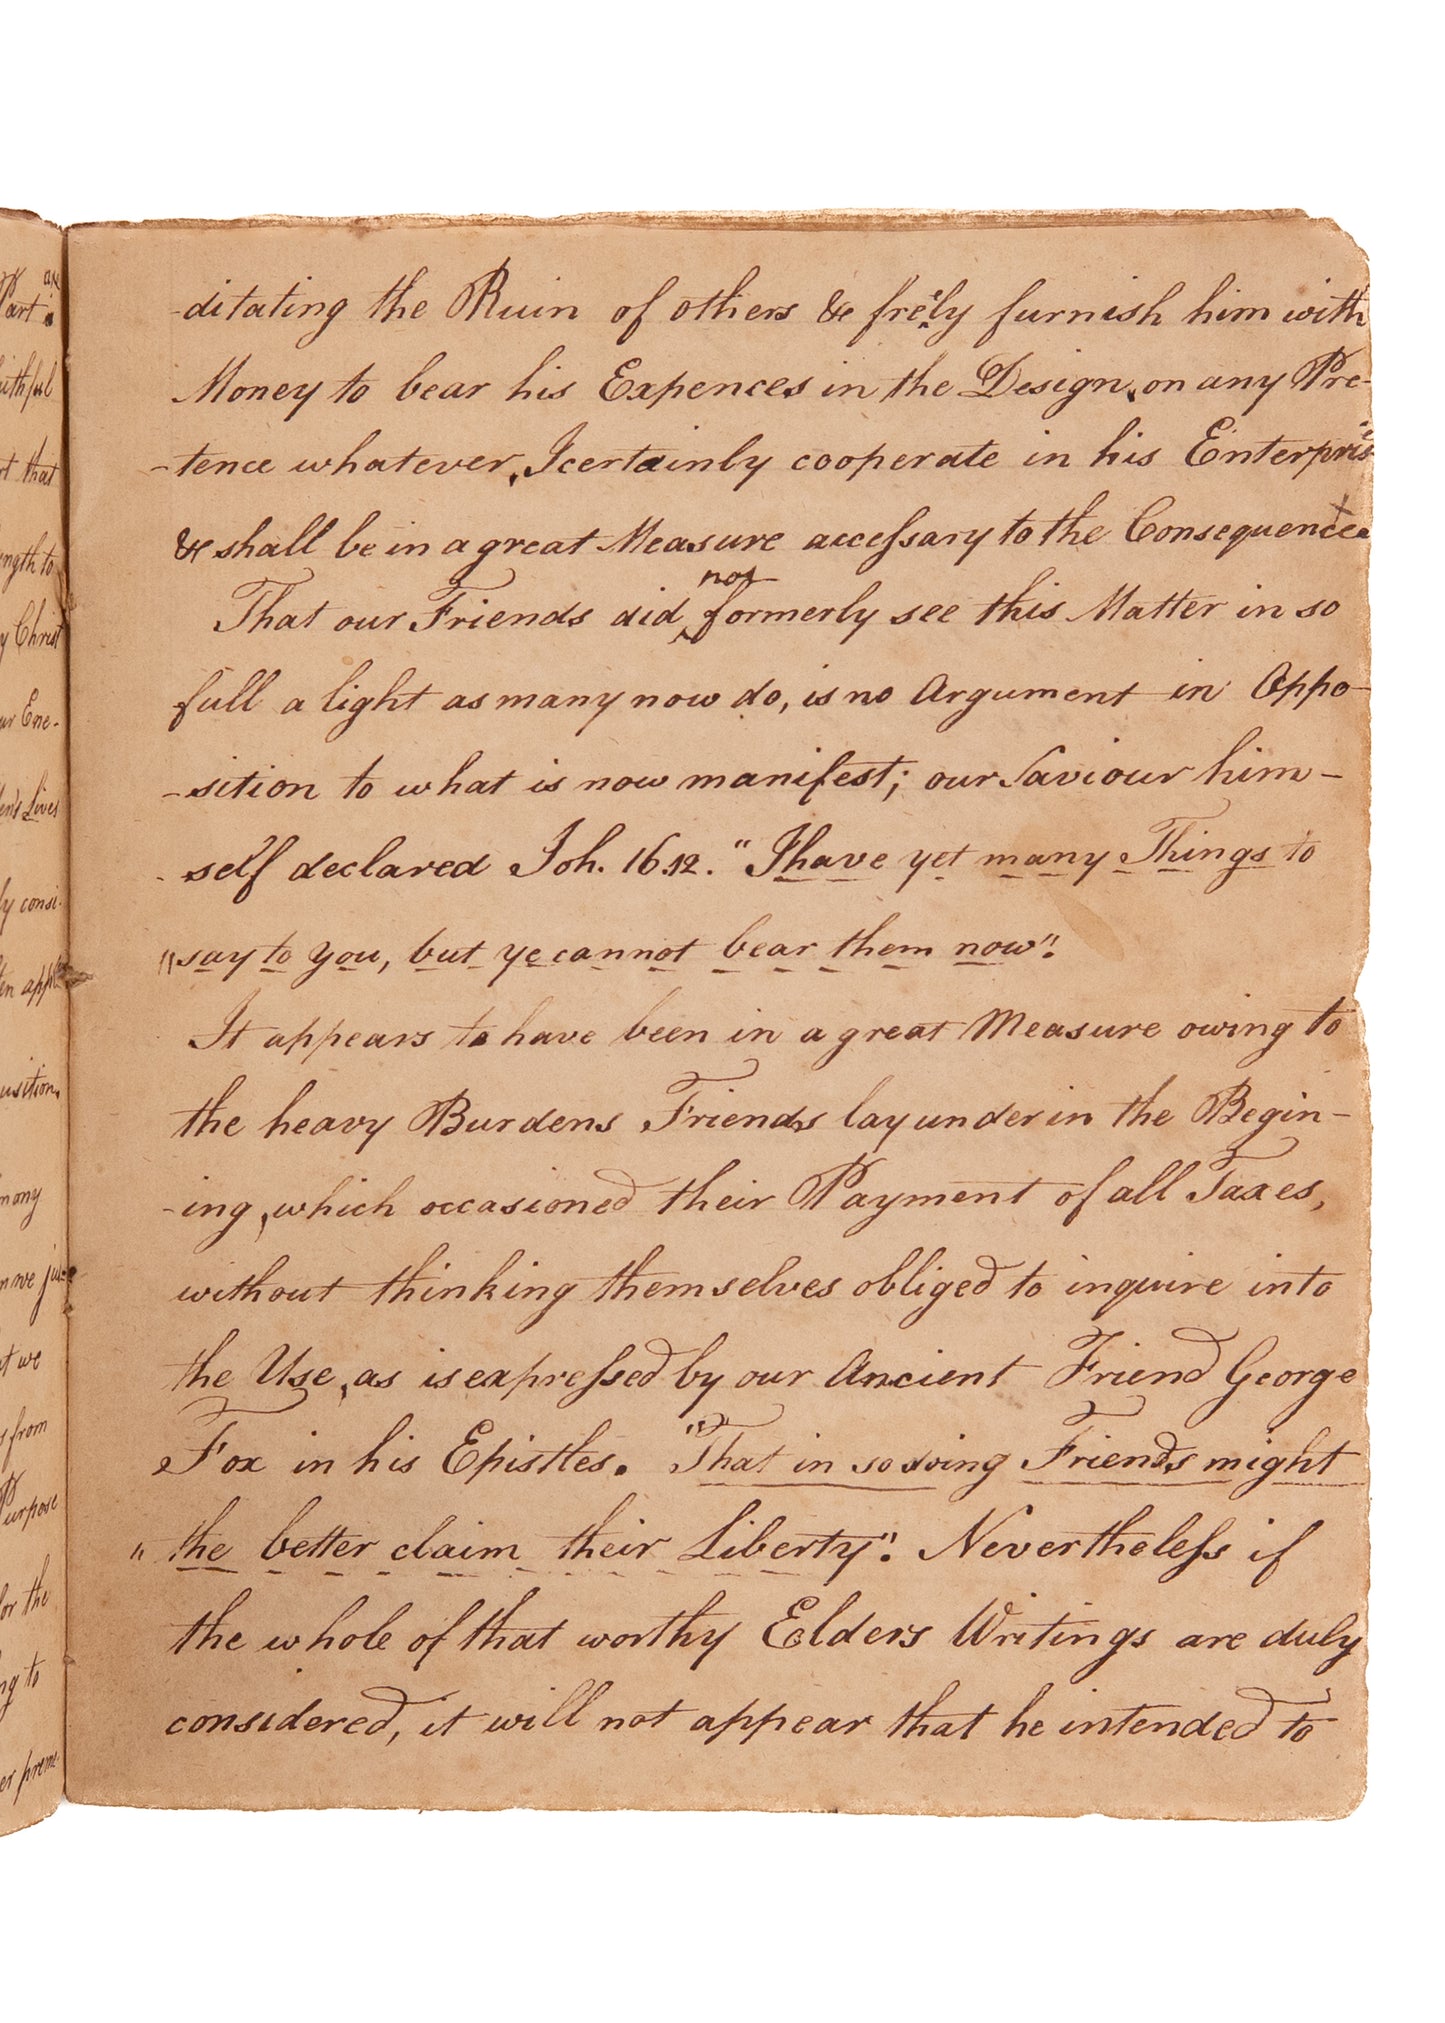 -ditating the Ruin of others & freely furnish him with
Money to bear his Expences in the Design, on any Pre-
-tence whatever, I certainly cooperate in his Enterprise
& shall be in a great Measure accessary to the Consequences
not
That our Friends did ‸ formerly see this Matter in so
full a light as many now do, is no Argument in Oppo-
-sition to what is now manifest; our Saviour him-
-self declared Joh. 16.12. "I have yet many Things to
"say to you, but ye cannot bear them now".
It appears to have been in a great Measure owing to
the heavy Burdens Friends lay under in the Begin-
-ing, which occasioned their Payment of all Taxes,
without thinking themselves obliged to inquire into
the Use, as is expressed by our Ancient Friend George
Fox in his Epistles. "That in so doing Friends might
"the better claim their Liberty". Nevertheless if
the whole of that worthy Elders Writings are duly
considered, it will not appear that he intended to